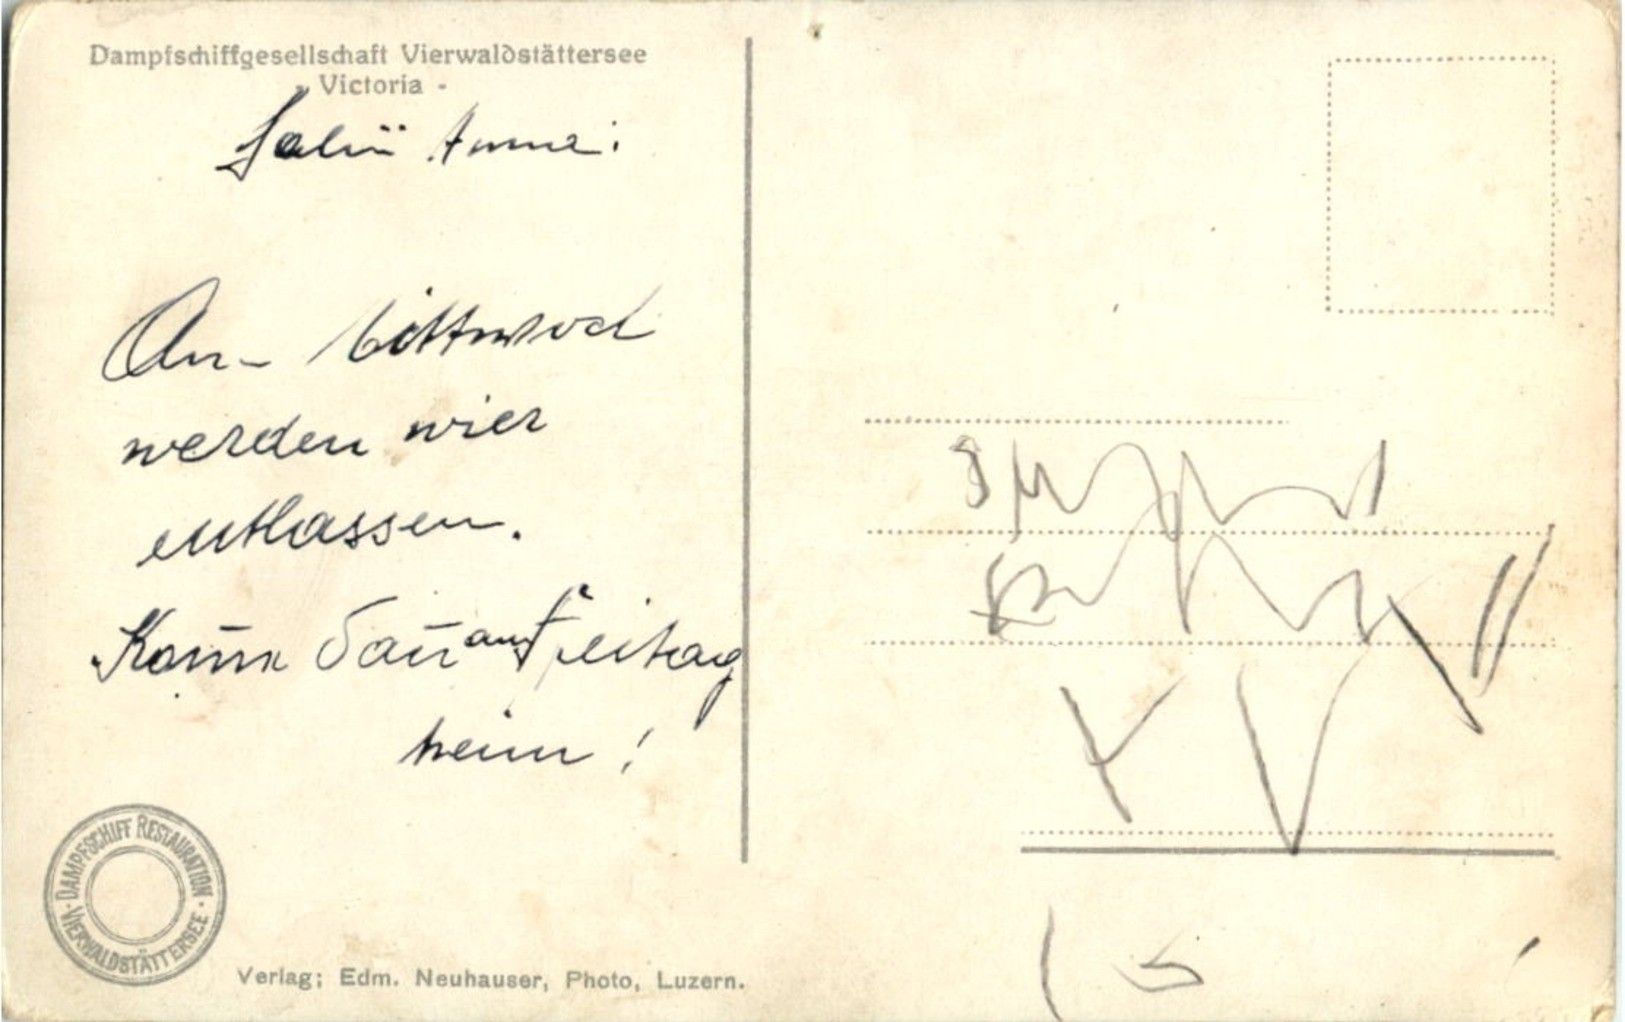 Dampfschiffgesellschaft Vierwaldstättersee
- Victoria -
Salü Anna:
Am Mittwoch
werden wier
entlassen.
Kom̄m dan̄ am Freitag
heim!
DAMPFSCHIFF RESTAURATION
VIERWALDSTÄTTERSEE
Verlag; Edm. Neuhauser, Photo, Luzern.